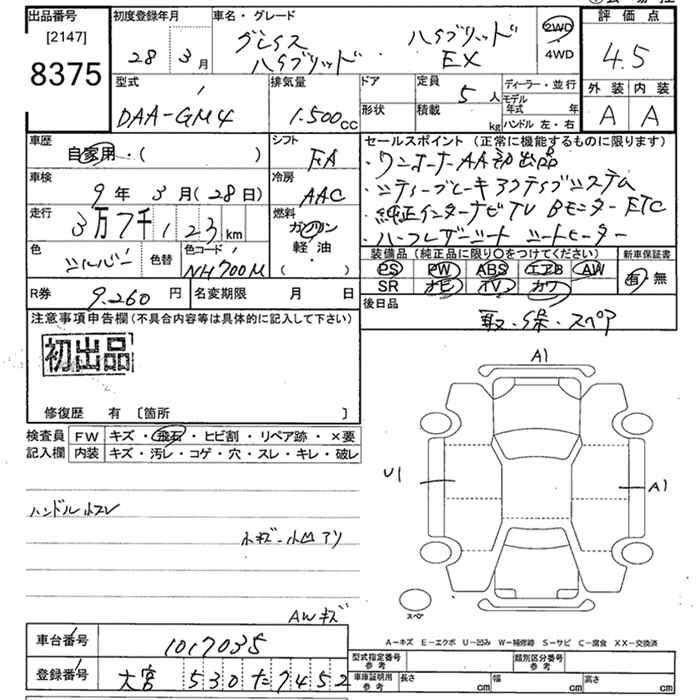 出品番号 初度登録年月 車名・グレード 評価点
[2147] 28年 3月 グレイス ハイブリッド 2WD 4.5
8375 ハイブリッド EX 4WD
型式 排気量 ドア 定員 5人 ディーラー・並行 外装 内装
DAA-GM4 1.500cc 形状 積載 kg モデル年式 年 A A
ハンドル 左・右
車歴 シフト セールスポイント (正常に機能するものに限ります)
自家用・( ) FA ・ワンオーナーAA初出品
車検 冷房 ・シティーブレーキアクティブシステム
9年 3月(28日) AAC ・純正インターナビTV Bモニター ETC
走行 燃料 ・ハーフレザーシート シートヒーター
3万7千123km ガソリン
色 色替 色コード 軽・油 装備品 (純正品に限り〇をつけてください) 新車保証書
シルバー NH700M ( ) PS PW ABS エアB AW 有・無
R券 9.260円 名変期限 月 日 SR ナビ TV カワ
注意事項申告欄 (不具合内容等は具体的に記入して下さい) 後日品
初出品 取・保・スペア
修復歴 有 [箇所 ]
検査員 FW キズ・飛石・ヒビ割・リペア跡・×要
記入欄 内装 キズ・汚レ・コゲ・穴・スレ・キレ・破レ
A1
U1 A1
ハンドル小スレ
小キズ-小凹アリ
スペア
AWキズ
A-キズ E-エクボ U-凹み W-補修跡 S-サビ C-腐食 XX-交換済
車台番号 1017035 型式指定番号 参考 類別区分番号 参考
登録番号 大宮 530 た 7452 車庫証明用 参考 長さ cm 幅 cm 高さ cm